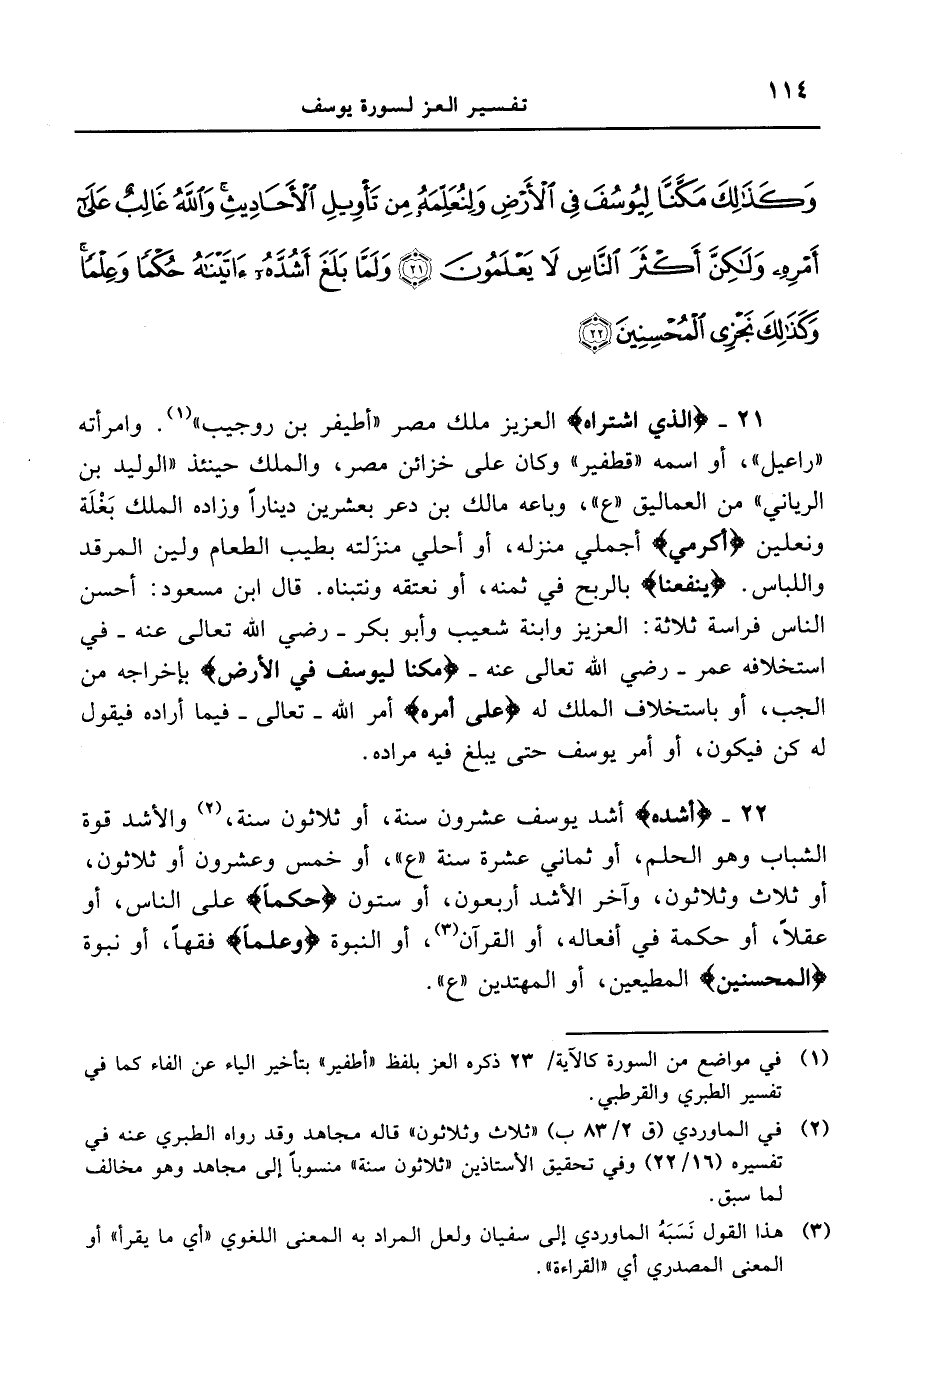 ١١٤
تفسير العز لسورة يوسف
وَكَذَٰلِكَ مَكَّنَّا لِيُوسُفَ فِى ٱلْأَرْضِ وَلِنُعَلِّمَهُۥ مِن تَأْوِيلِ ٱلْأَحَادِيثِ ۚ وَٱللَّهُ غَالِبٌ عَلَىٰٓ
أَمْرِهِۦ وَلَٰكِنَّ أَكْثَرَ ٱلنَّاسِ لَا يَعْلَمُونَ ﴿٢١﴾ وَلَمَّا بَلَغَ أَشُدَّهُۥٓ ءَاتَيْنَٰهُ حُكْمًا وَعِلْمًا ۚ
وَكَذَٰلِكَ نَجْزِى ٱلْمُحْسِنِينَ ﴿٢٢﴾
٢١ ـ ﴿الذي اشتراه﴾ العزيز ملك مصر «أطيفر بن روجيب»(١). وامرأته
«راعيل»، أو اسمه «قطفير» وكان على خزائن مصر، والملك حينئذ «الوليد بن
الرياني» من العماليق «ع»، وباعه مالك بن دعر بعشرين ديناراً وزاده الملك بَغْلَة
ونعلين ﴿أكرمي﴾ أجملي منزله، أو أحلي منزّلته بطيب الطعام ولين المرقد
واللباس. ﴿ينفعنا﴾ بالربح في ثمنه، أو نعتقه ونتبناه. قال ابن مسعود: أحسن
الناس فراسة ثلاثة: العزيز وابنة شعيب وأبو بكر ـ رضي الله تعالى عنه ـ في
استخلافه عمر ـ رضي الله تعالى عنه ـ ﴿مكنا ليوسف في الأرض﴾ بإخراجه من
الجب، أو باستخلاف الملك له ﴿على أمره﴾ أمر الله ـ تعالى ـ فيما أراده فيقول
له كن فيكون، أو أمر يوسف حتى يبلغ فيه مراده.
٢٢ ـ ﴿أشده﴾ أشد يوسف عشرون سنة، أو ثلاثون سنة،(٢) والأشد قوة
الشباب وهو الحلم، أو ثماني عشرة سنة «ع»، أو خمس وعشرون أو ثلاثون،
أو ثلاث وثلاثون، وآخر الأشد أربعون، أو ستون ﴿حكماً﴾ على الناس، أو
عقلاً، أو حكمة في أفعاله، أو القرآن(٣)، أو النبوة ﴿وعلماً﴾ فقهاً، أو نبوة
﴿المحسنين﴾ المطيعين، أو المهتدين «ع».
(١) في مواضع من السورة كالآية/ ٢٣ ذكره العز بلفظ «أطفير» بتأخير الياء عن الفاء كما في
تفسير الطبري والقرطبي.
(٢) في الماوردي (ق ٨٣/٢ ب) «ثلاث وثلاثون» قاله مجاهد وقد رواه الطبري عنه في
تفسيره (٢٢/١٦) وفي تحقيق الأستاذين «ثلاثون سنة» منسوباً إلى مجاهد وهو مخالف
لما سبق.
(٣) هذا القول نَسَبَهُ الماوردي إلى سفيان ولعل المراد به المعنى اللغوي «أي ما يقرأ» أو
المعنى المصدري أي «القراءة».